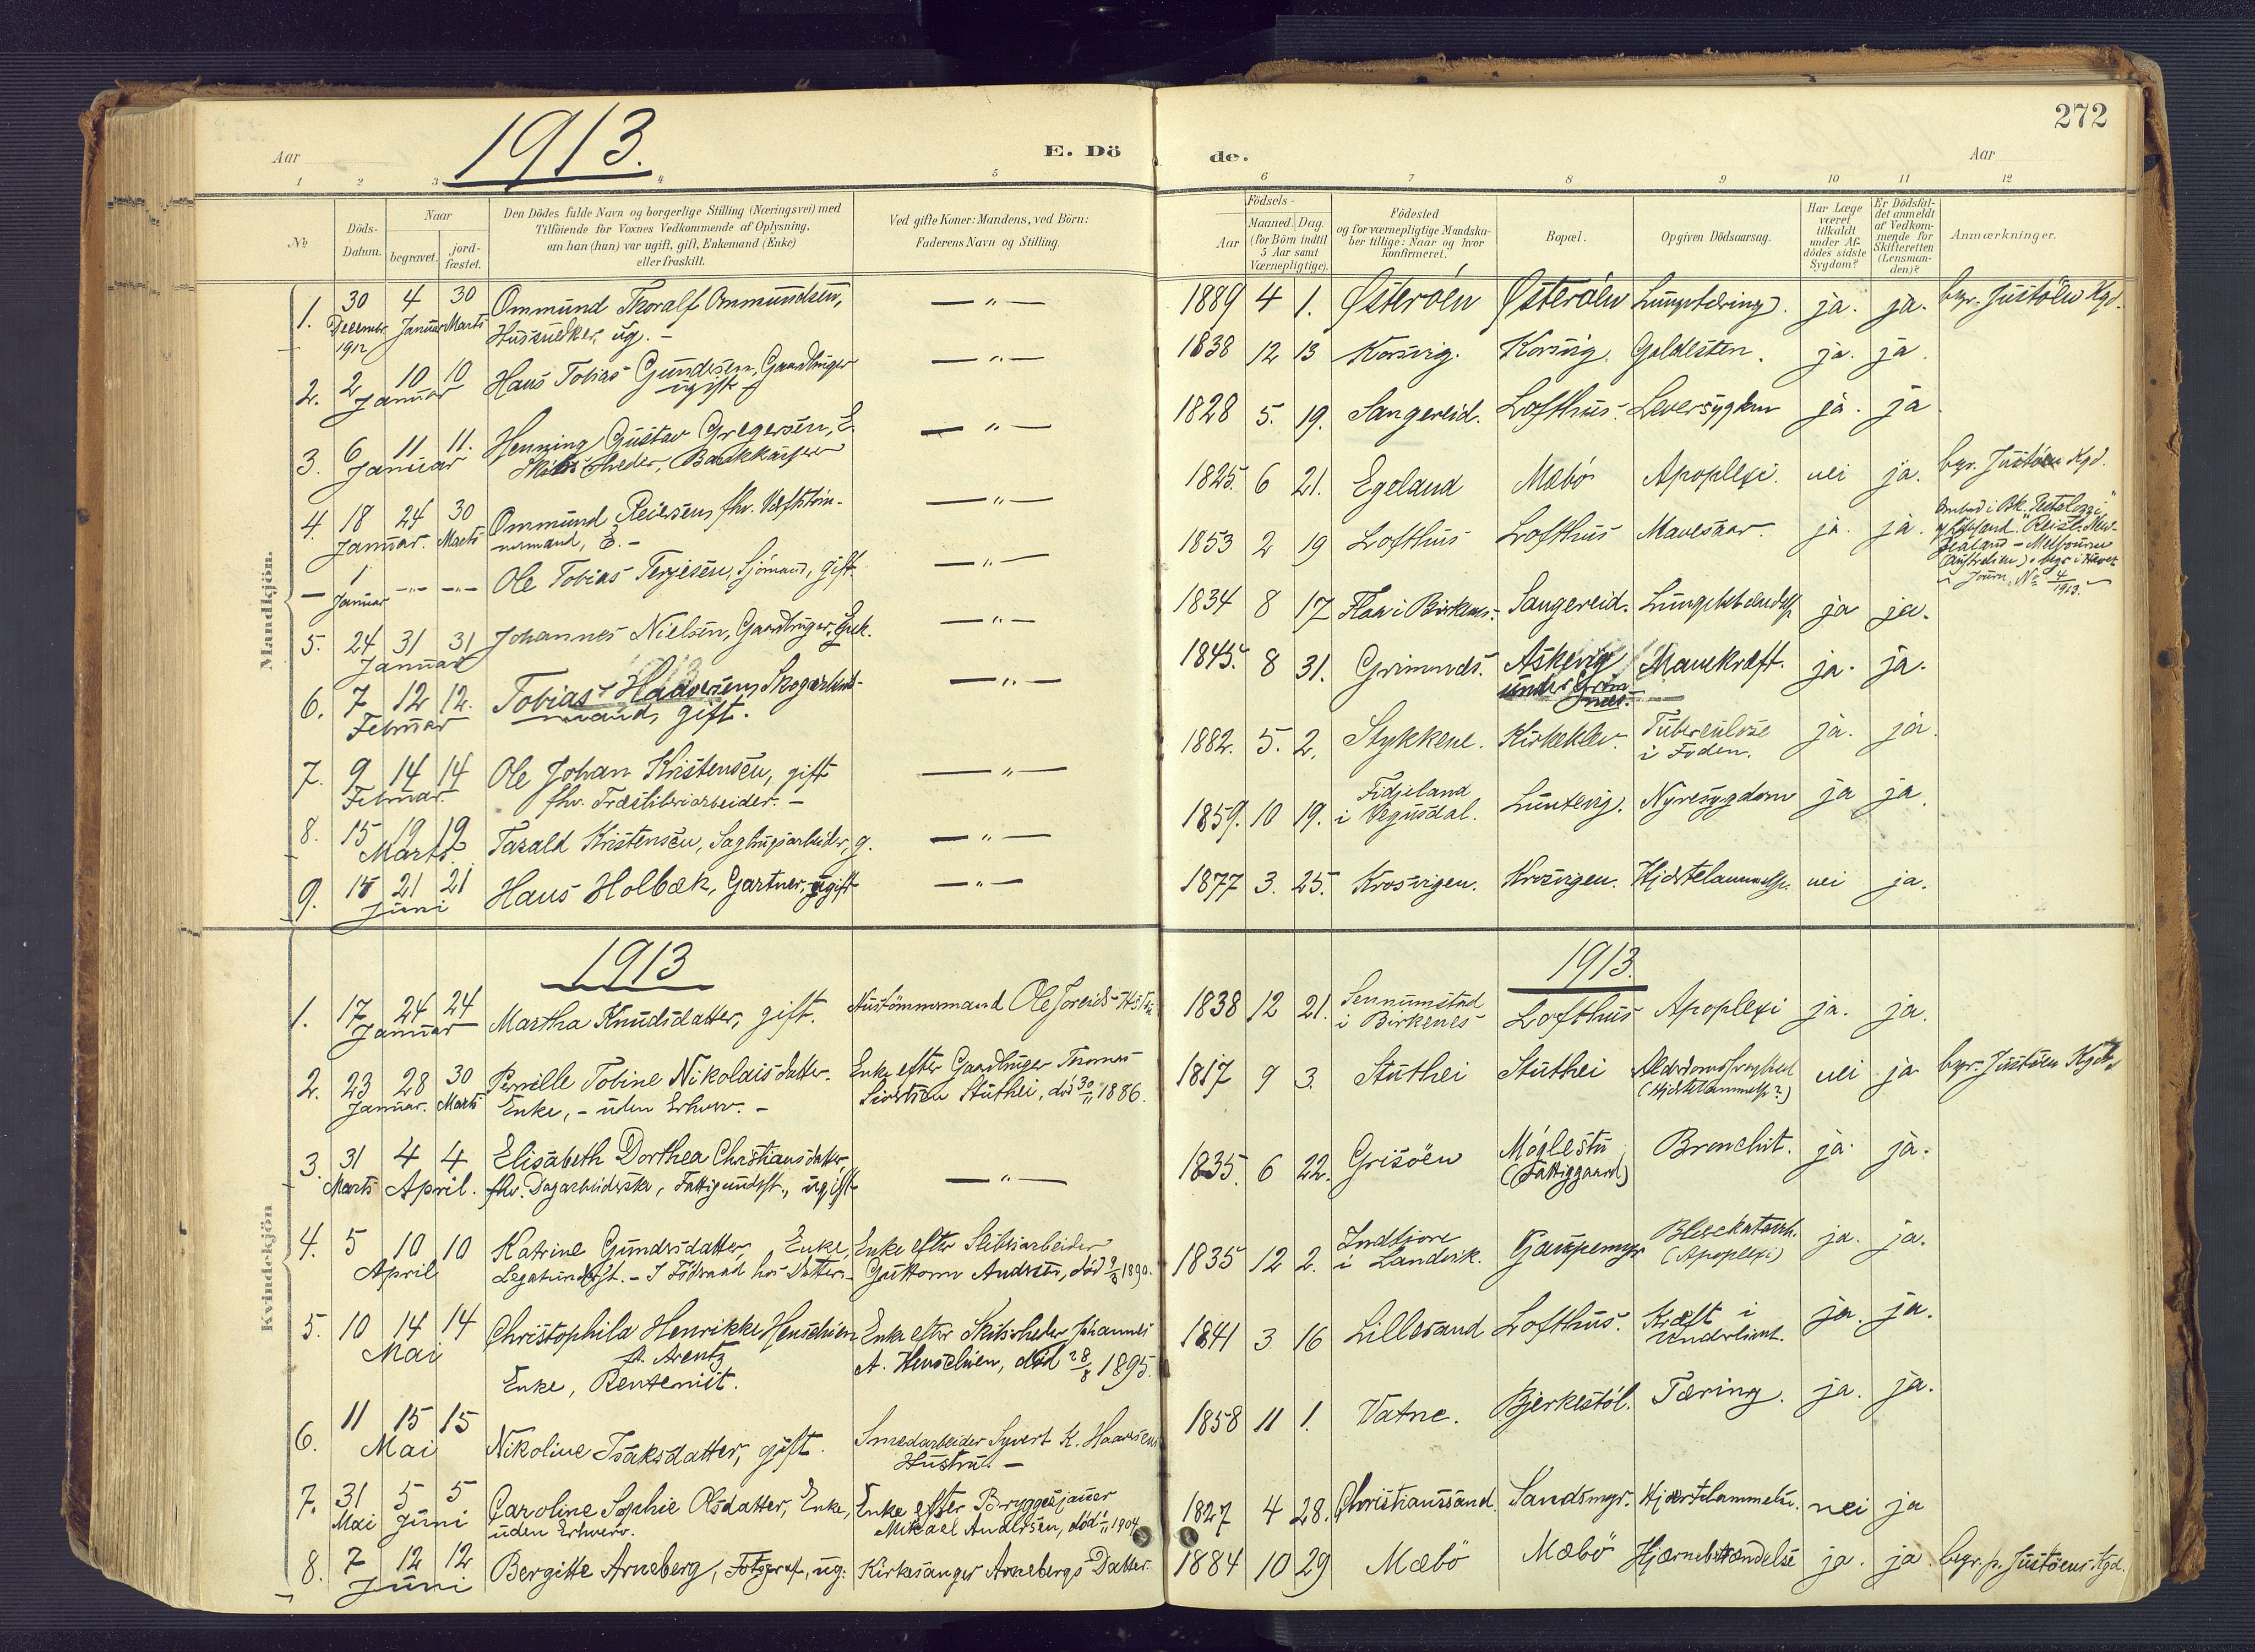 272
Aar
1913.
E. Dö
de.
Aar
1 2 3 4 5 6 7 8 9 10 11 12
№
Döds-
Datum.
Naar
begravet.
jord-
fæstet.
Den Dödes fulde Navn og borgerlige Stilling (Næringsvei) med
Tilföiende for Voxnes Vedkommende af Oplysning,
om han (hun) var ugift, gift, Enkemand (Enke)
eller fraskilt.
Ved gifte Koner: Mandens, ved Börn:
Faderens Navn og Stilling.
Födsels-
Aar
Maaned. Dag.
(for Börn indtil
5 Aar samt
Værnepligtige).
Födested
og for værnepligtige Mandska-
ber tillige: Naar og hvor
konfirmeret.
Bopæl.
Opgiven Dödsaarsag.
Har Læge
været
tilkaldt
under Af-
dödes sidste
Sygdom?
Er Dödsfal-
det anmeldt
af Vedkom-
mende for
Skifteretten
(Lensman-
den)?
Anmærkninger.
Mandkjön.
1. 30 4 30 Ommund Thoralf Ommundsen, — " — 1889 4 1. Østeröen Østeröen Lungetæring. ja. ja. begr. Justöen Kgd.
Decembr. Januar Marts ug. —
1912
2. 2 10 10 Hans Tobias Gundersen, Gaardbruger — " — 1838 12 13 Korsvig. Korsvig. Galdesten. ja. ja
Januar ugift
3. 6 11 11. Henning Gustav Gregersen, E. — " — 1828 5. 19. Sangereid. Lofthus. Leversygdom ja. ja
Januar Skibsrheder, Bankkasserer
4. 18 24 30 Ommund Reiersen, fhv. — " — 1825. 6 21. Egeland Mæbö Apoplexi. nei ja. begr. Justöen Kgd.
Januar. Marts E. —
— 1 — " — — " — Ole Tobias Terjesen, Sjömand, gift — " — 1853 2 19 Lofthus Lofthus Mavesaar. ja. ja.
Januar
Ombord i Bk. "Pestalozzi"
Melbourne
(Australien).
Journ. № 4/1913.
5. 24 31 31 Johannes Nielsen, Gaardbruger, Enk. — " — 1834 8 17 Flaa i Birkenes. Sangereid. Lungebetændelse ja ja.
Januar
6. 7 12 12. Tobias Haaversen, Skogarbeids- — " — 1845. 8 31. Grimnæs. Askevig Mavekræft. ja. ja.
Februar mand, gift.
under Grim-
næs.
7. 9 14 14 Ole Johan Kristensen, gift — " — 1882. 5. 2. Stykkene. Kirkeklev. Tuberculose ja. ja.
Februar. fhv. Træsliberiarbeider. — i Foden.
8. 15 19 19 Tarald Kristensen, Sagbrugsarbeider, g. — " — 1859. 10 19. Fidjeland Luntevig. Nyresygdom ja ja.
Marts. i Vegusdal.
9. 15 21 21 Hans Holbæk, Gartner, ugift — " — 1877 3. 25. Krosvigen. Krosvigen. Hjertelammelse. nei ja.
Juni
Kvindekjön
1913
1913.
1. 17 24 24 Martha Knudsdatter, gift. Hustömmermand Ole Joreids Hustru 1838 12 21. Sennumstad Lofthus Apoplexi ja. ja.
Januar i Birkenes
2. 23 28 30 Pernille Tobine Nikolaisdatter. Enke efter Gaardbruger Thomas 1817 9 3. Stuthei Stuthei Alderdomssvaghed nei ja begr. Justöen Kgd.
Januar. Marts Enke, — uden Erhverv. — Sivertsen Stuthei, död 30/11 1886. (Hjertelammelse?)
3. 31 4 4 Elisabeth Dorthea Christiansdatter — " — 1835. 6 22. Grisöen Möglestu Bronchit. ja. ja.
Marts April. fhv. Dagarbeiderske, Fattigundst., ugift (Fattiggaard)
4. 5 10 10 Katrine Gundersdatter, Enke, Enke efter Sliberiarbeider 1835 12 2. Indtjore Gaupemyr Blærekatarrh. ja. ja.
April Legatunderst. — I Födraad hos Datter. — Guttorm Andersen, död 1890. i Landvik. (Apoplexi)
5. 10 14 14 Christophila Henrikke Henschien Enke efter Skibsrheder Johannes 1841 3 16 Lillesand Lofthus. Kræft i ja. ja.
Mai f. Arentz A. Henschien, död 28/8 1895. Underlivet.
Enke, Rentenist.
6. 11 15 15 Nikoline Isaksdatter, gift. Smedarbeider Syvert K. Haaversens 1858 11 1. Vatne. Bjerkestöl. Tæring. ja. ja.
Mai Hustru. —
7. 31 5 5 Caroline Sophie Olsdatter, Enke, Enke efter Bryggesjauer 1827 4 28. Christianssand. Sandsmyr. Hjertelammelse. nei ja
Mai Juni uden Erhverv. Mikael Andersen, död 1904
8. 7 12 12 Bergitte Arneberg, Fotograf, ug. Kirkesanger Arnebergs Datter. 1884 10 29 Mæbö Mæbö Hjernebetændelse ja. ja begr. p. Justöens Kgd.
Juni